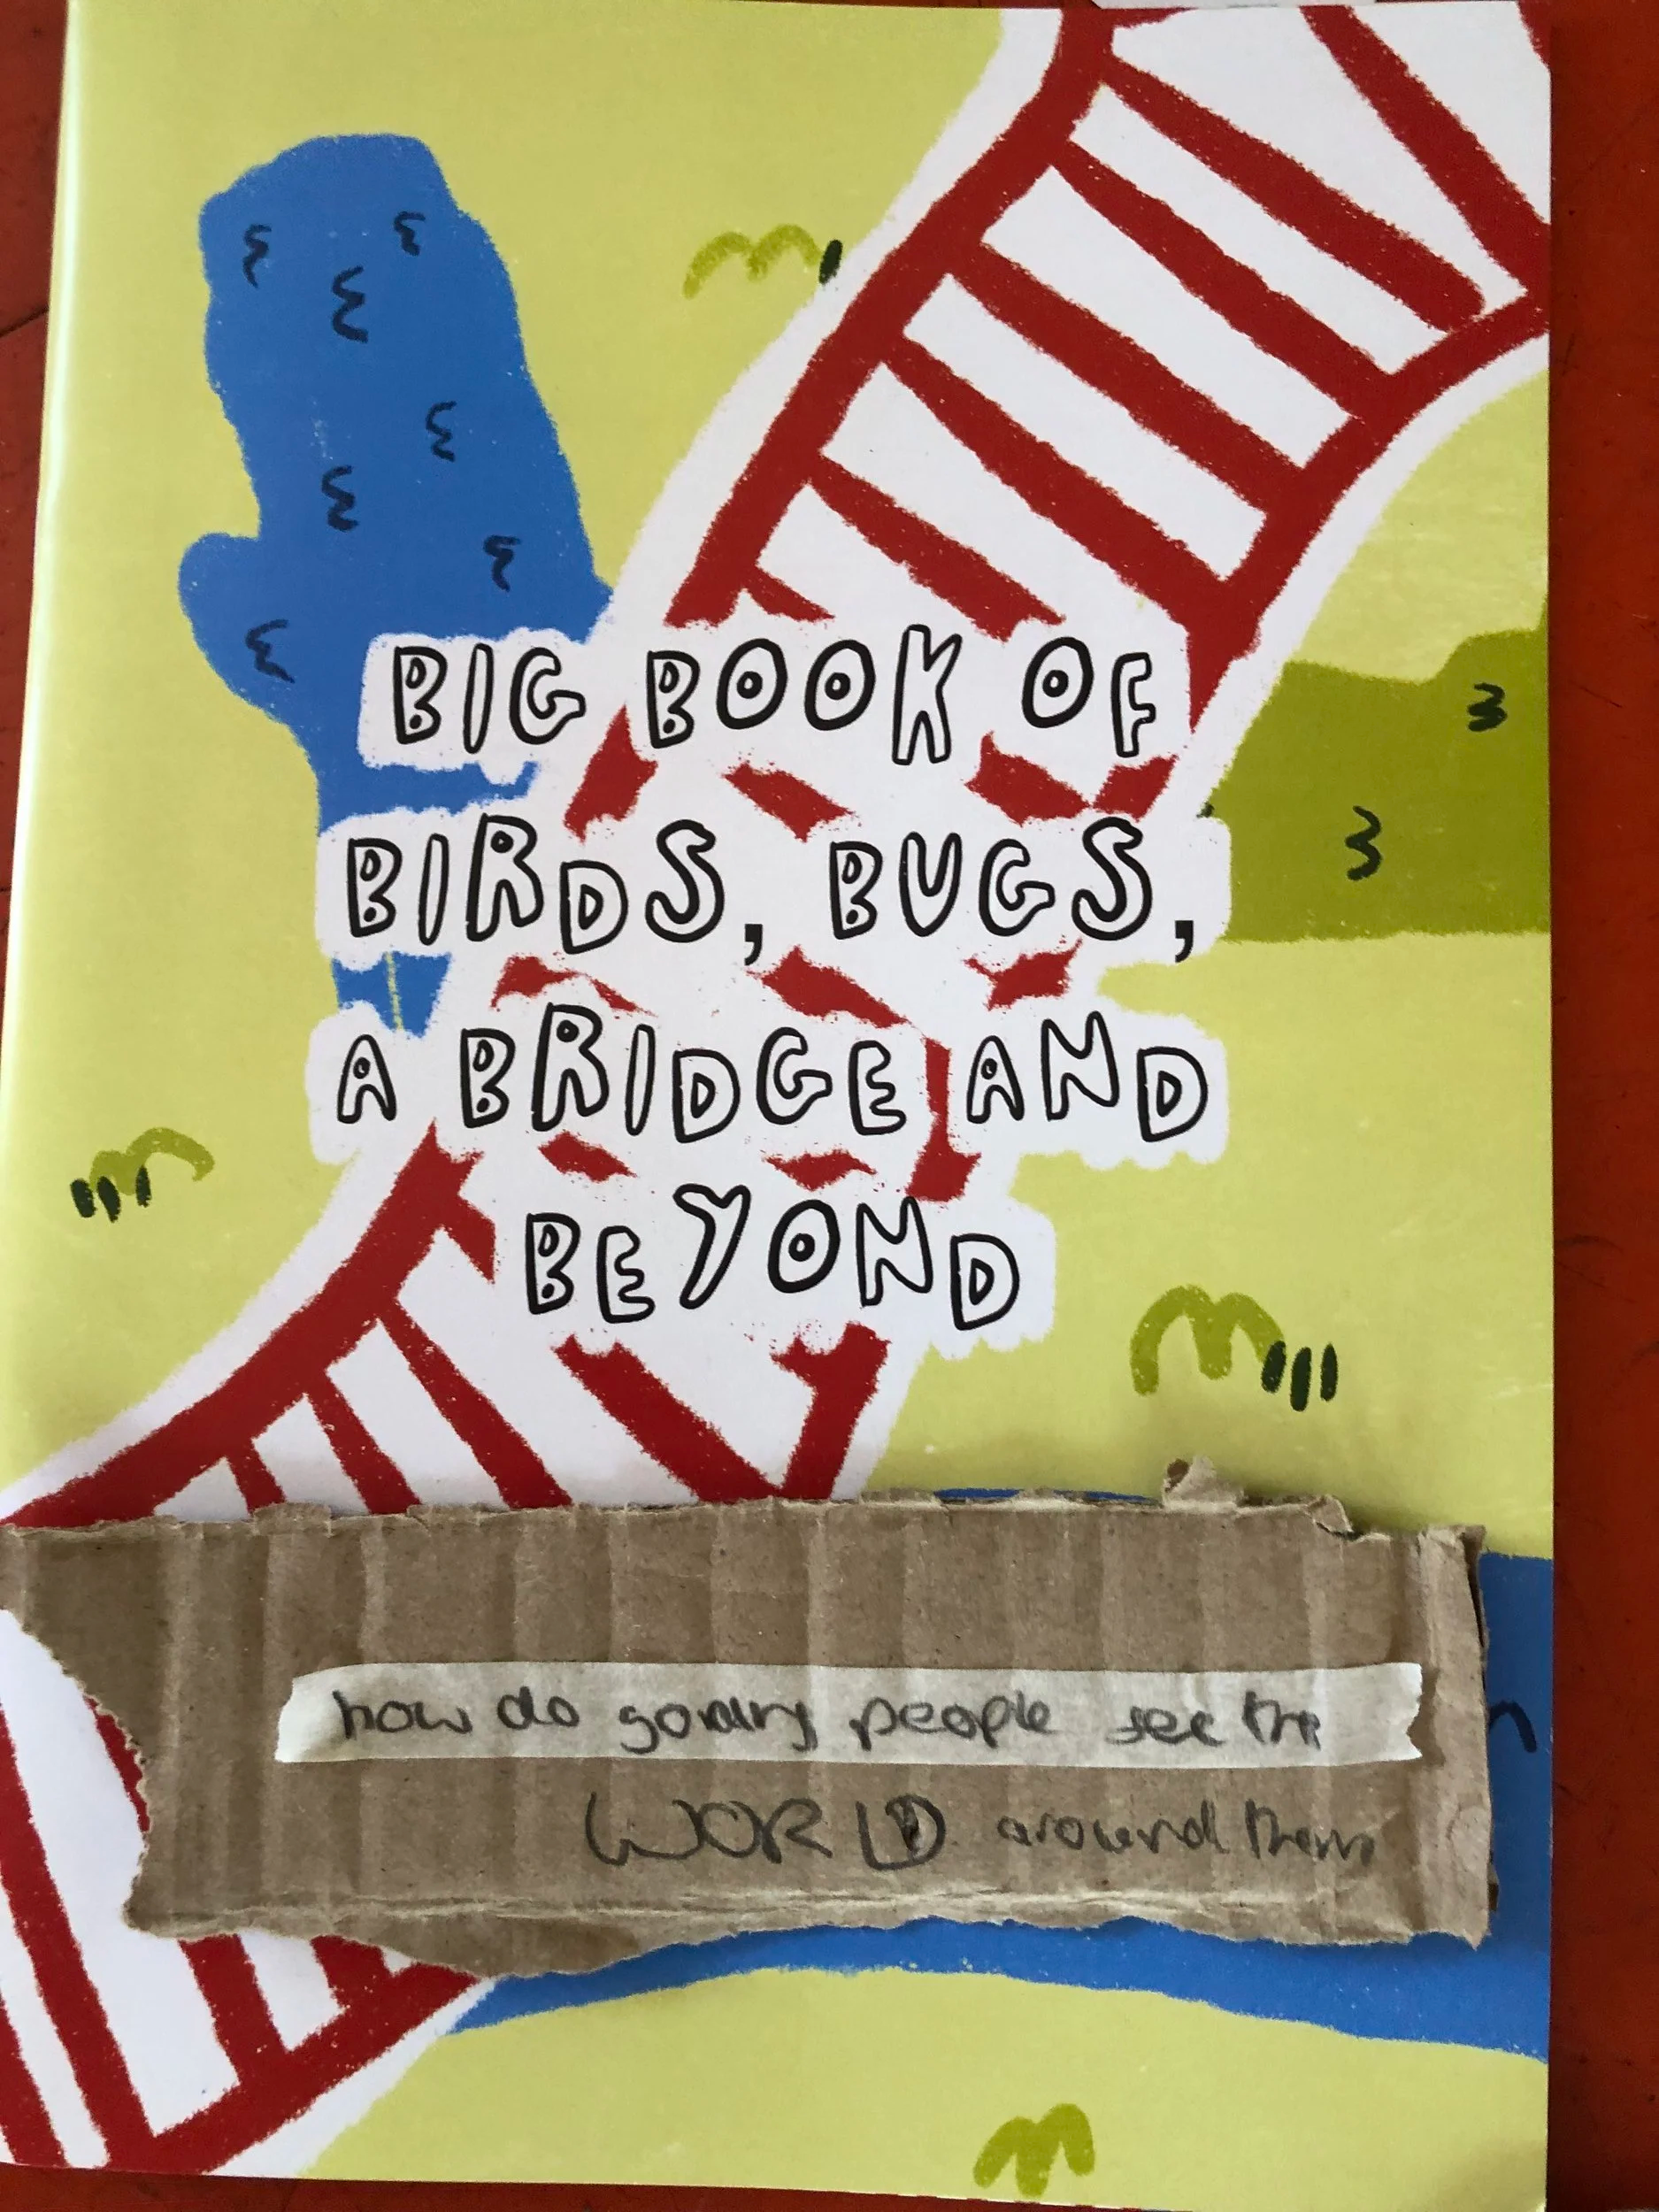 BIG BOOK OF
BIRDS, BUGS,
A BRIDGE AND
BEYOND
how do people see the
WORLD around them